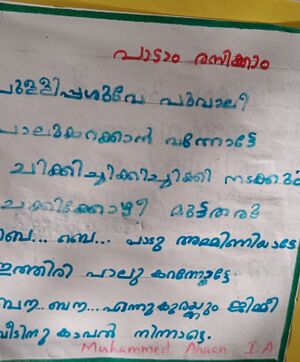 പാടാം രസിക്കാം
പുള്ളിപ്പശുവേ പൂവാലീ
പാലുകറക്കാൻ വന്നോട്ടേ
ചിക്കിച്ചിക്കിച്ചിക്കി നടക്കും
ചക്കിക്കോഴീ മുട്ടതരൂ
ബെ... ബെ... പാടു അമ്മിണിയാടേ
ഇത്തിരി പാലു കറന്നോട്ടേ
ബൗ... ബൗ... എന്നുകുരയ്ക്കും ജിമ്മീ
വീടിനു കാവൽ നിന്നാട്ടെ.
Muhammed Anaan I A